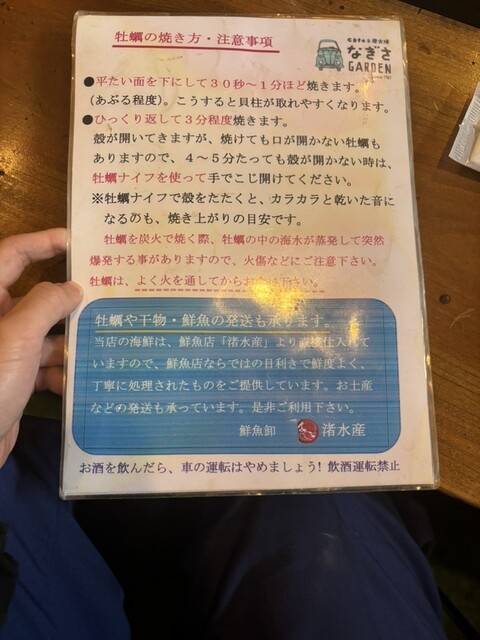 牡蠣の焼き方・注意事項
なぎさ
GARDEN
●平たい面を下にして30秒～1分ほど焼きます。
（あぶる程度）。こうすると貝柱が取れやすくなります。
●ひっくり返して3分程度焼きます。
殻が開いてきますが、焼けても口が開かない牡蠣も
ありますので、4～5分たっても殻が開かない時は、
牡蠣ナイフを使って手でこじ開けてください。
※牡蠣ナイフで殻をたたくと、カラカラと乾いた音に
なるのも、焼き上がりの目安です。
牡蠣を炭火で焼く際、牡蠣の中の海水が蒸発して突然
爆発する事がありますので、火傷などにご注意下さい。
牡蠣は、よく火を通してからお 下さい。
牡蠣や干物・鮮魚の発送も承ります。
当店の海鮮は、鮮魚店「渚水産」より直接仕入れて
いますので、鮮魚店ならではの目利きで鮮度よく、
丁寧に処理されたものをご提供しています。お土産
などの発送も承っています。是非ご利用下さい。
鮮魚卸 渚水産
お酒を飲んだら、車の運転はやめましょう！飲酒運転禁止